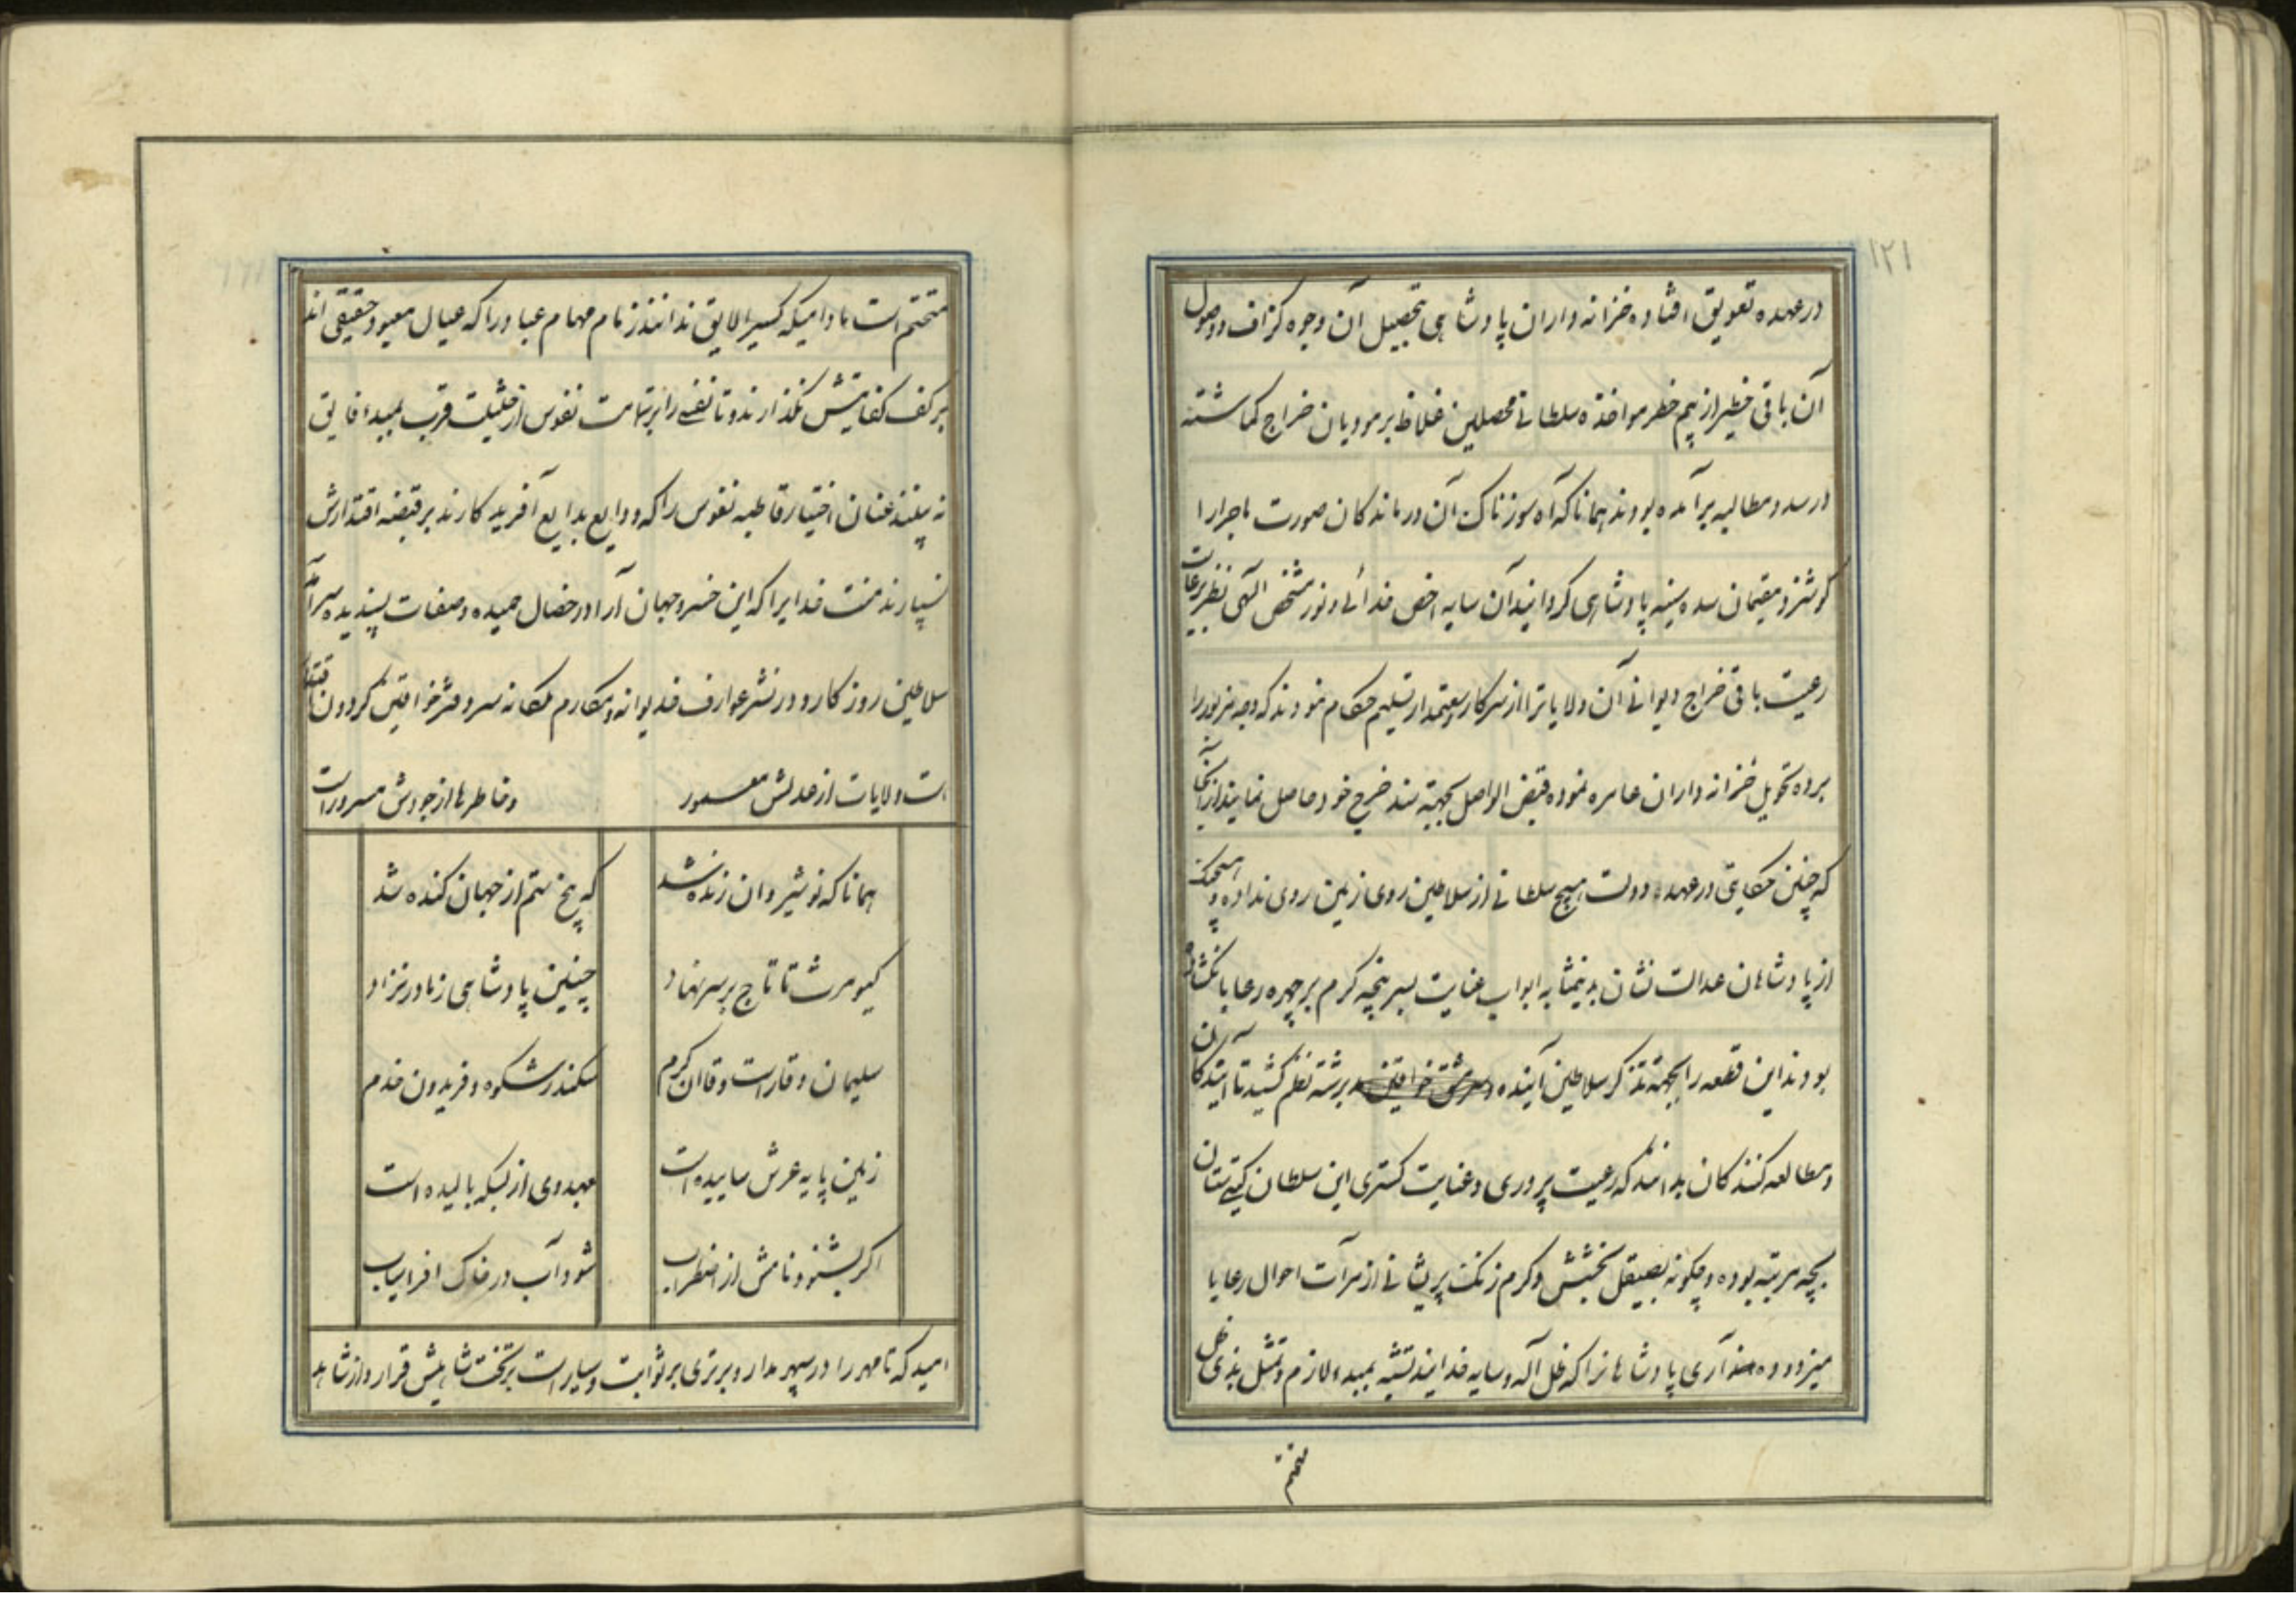 ۱۲۱
در عهده تعویق افتاده خزانه داران پادشاهی بتحصیل آن وجوه کزاف و وصول
آن باقی خطیر از بیم خطر مواخذه سلطانی محصلین غلاظ بر مودیان خراج کماشته
در سدد مطالبه برآمده بودند همانا که آه سوزناک آن درماندکان صورت ماجرا را
کوشزد مقیمان سده سنیه پادشاهی کردانید آن سایه اخص خدائی و نور مشخص الهی نظر برعایت
رعیت باقی خراج دیوانی آن ولایاترا از سرکار تسلیم حکام نمودند که وجه مزبور را
برده تحویل خزانه داران عامره نموده قبض الواصل بجهته سند خرج خود حاصل نمایند از آنجا
که چنین حکایتی در عهد دولت هیچ سلطانی از سلاطین روی زمین روی نداده و هیچیک
از پادشاهان عدالت نشان بدینمثابه ابواب عنایت بسر پنجه کرم بر چهره رعایا نکشاده
بودند این قطعه را بجهته تذکر سلاطین آینده و سرمشق خواقین برشته نظم کشید تا آیندکان
و مطالعه کنندکان بدانند که رعیت پروری و عنایت کستری این سلطان کیتی ستان
بچه مرتبه بوده و چکونه بصیقل بخشش و کرم زنک پریشانی از مرآت احوال رعایا
میزدوده آری پادشاهانرا که ظل آله و سایه خدایند تشبه بمبدء لازم و تمثل بذی ظل
متحتم
متحتم است مادامیکه کسیرا لایق ندانند زمام مهام عباد را که عیال معبود حقیقی اند
بر کف کفایتش نکذارند و تا نفسی را برتهامت نفوس از حیثیت قرب بمبدء فایق
نه بینند عنان اختیار قاطبه نفوس را که ودایع بدایع آفریدکارند بر قبضه اقتدارش
نسپارند منت خدایرا که این خسرو جهان آرا در خصال حمیده و صفات پسندیده سرآمد
سلاطین روزکار و در نشر عوارف خدیوانه و مکارم ملکانه سر دفتر خواقین کردون اقتدار
است ولایات از عدلش معمور و خاطرها از جودش مسرور است
همانا که نوشیروان زنده شد که بیخ ستم از جهان کنده شد
کیومرث تا تاج بر سر نهاد چنین پادشاهی ز مادر نزاد
سلیمان وقار است و قاآن کرم سکندر شکوه و فریدون خدم
زمین پایه عرش ساییده است بعهد وی از بسکه بالیده است
اکر بشنود نامش از اضطراب شود آب در خاک افراسیاب
امید که تا مهر را در سپهر مدار و برتری بر ثوابت و سیار است بر تخت شاهیش قرار و از شاهد